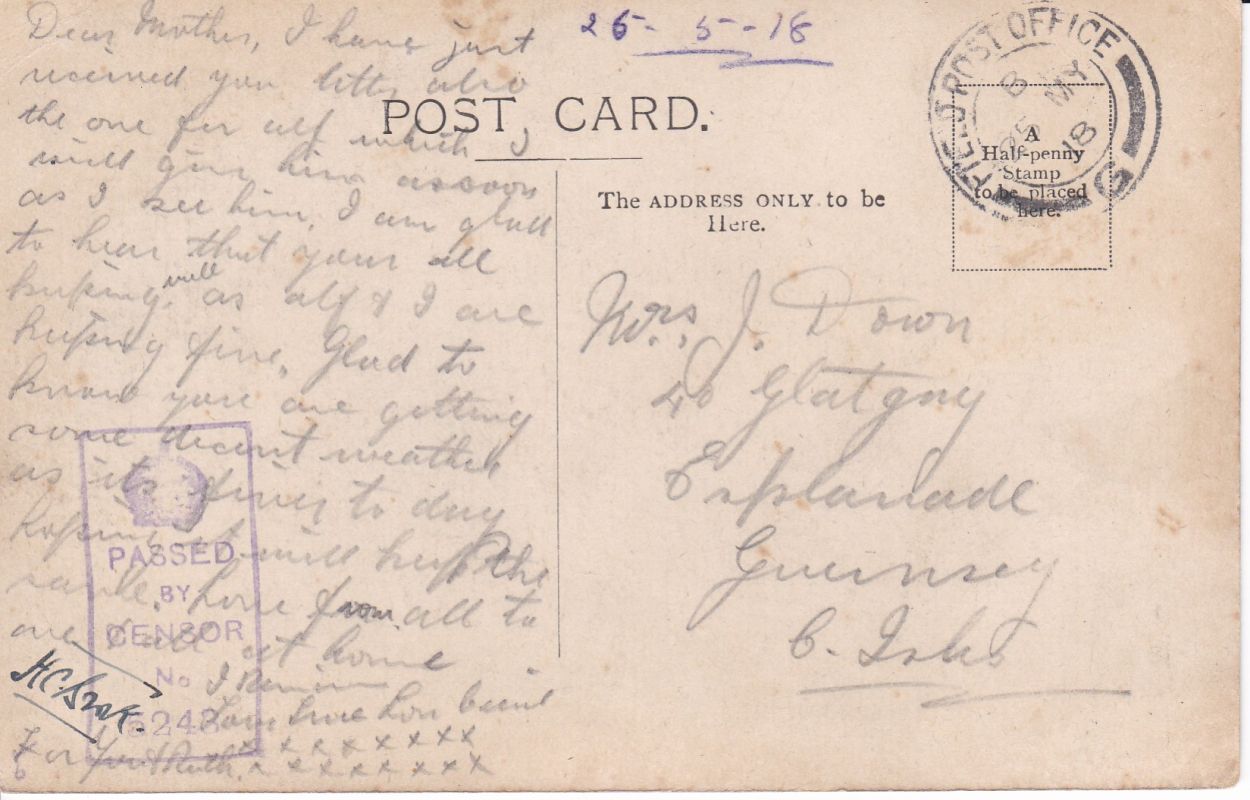 Dear Mother, I have just
received you letter also
the one for alf which I
will give him assoon
as I see him. I am glad
to hear that your all
keeping well as alf & I are
keeping fine, Glad to
know your are getting
some decent weather
as its fine to day
hoping it will keep the
same. Love from all to
all at home
I Remain
Your
For
x x x x x x x x
x x x x x x x x
26-5-18
POST CARD.
The ADDRESS ONLY to be
Here.
Mrs. J. Down
40 Glatgny
Esplanade
Guernsey
C. Isles
FIELD POST OFFICE
B MY
18
A
Half-penny
Stamp
to be placed
here.
PASSED
BY
CENSOR
No
5248